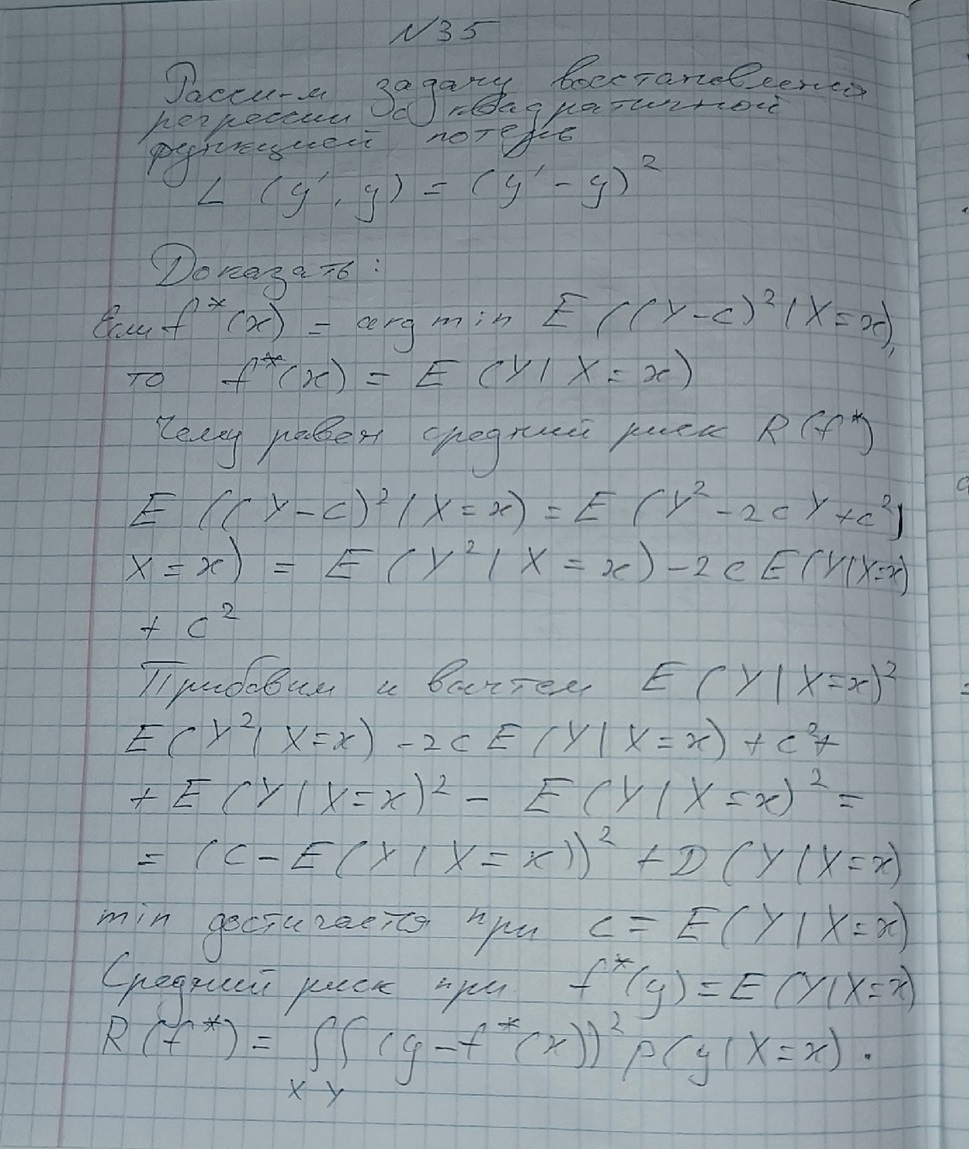 №35
Рассм-м задачу восстановления
регрессии с квадратичной
функцией потерь
L (y', y) = (y' - y)²
Доказать:
Если f*(x) = arg min E ((Y-c)² | X=x),
то f*(x) = E (Y | X=x)
Чему равен средний риск R(f*)
E ((Y-c)² | X=x) = E (Y² - 2cY + c² |
X=x) = E (Y² | X=x) - 2c E(Y|X=x)
+ c²
Прибавим и вычтем E (Y | X=x)²
E(Y² | X=x) - 2c E (Y | X=x) + c² +
+ E (Y | X=x)² - E (Y | X=x)² =
= (c - E (Y | X=x))² + D (Y | X=x)
min достигается при c = E(Y | X=x)
Средний риск при f*(y) = E (Y|X=x)
R(f*) = ∫∫ (y - f*(x))² p(y | X=x) ·
X Y